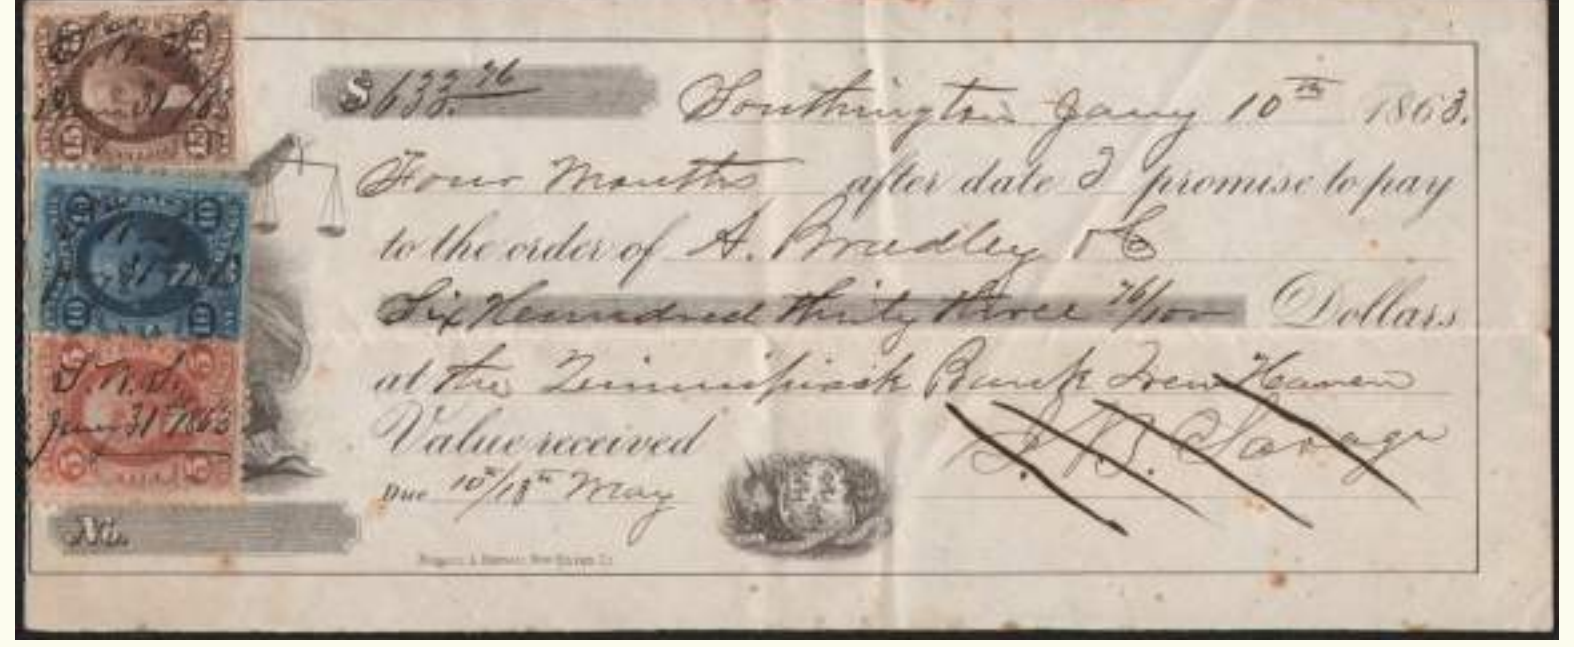 $633.76
Southington Jany 10th 1863.
Four Months after date I promise to pay
to the order of A. Bradley & C
Six Hundred thirty three 76/100 Dollars
at the Bank New Haven
Value received
Savage
Due 10th/13th May
No.
15 15
15 15
31 1863
10 10
31 1863
10 10
5 5
Jany 31 1863
5 5